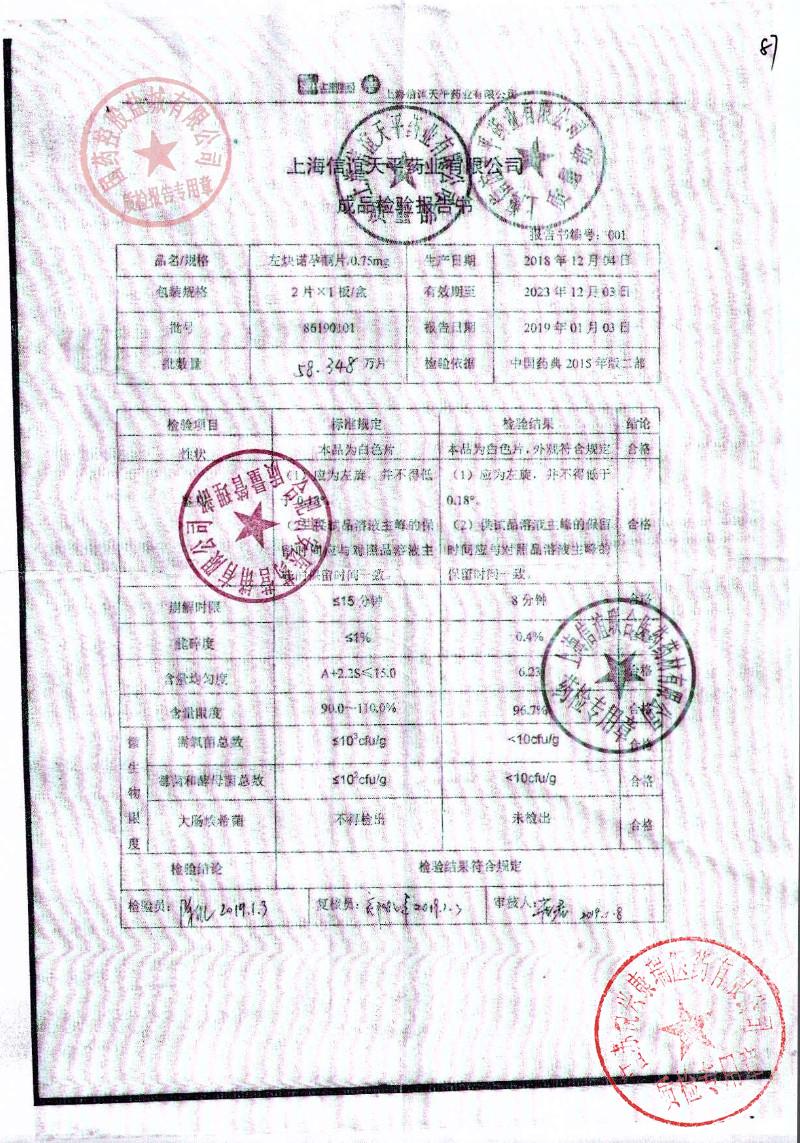 87
上海信谊天平药业有限公司
上海信谊天平药业有限公司
成品检验报告书
报告书编号：001
品名/规格 左炔诺孕酮片/0.75mg 生产日期 2018 年 12 月 04 日
包装规格 2 片×1 板/盒 有效期至 2023 年 12 月 03 日
批号 86190101 报告日期 2019 年 01 月 03 日
批数量 58.348 万片 检验依据 中国药典 2015 年版二部
检验项目 标准规定 检验结果 结论
性状 本品为白色片 本品为白色片，外观符合规定 合格
（1）应为左旋，并不得低 （1）应为左旋，并不得低于
0.18°。 0.18°。
（2）供试品溶液主峰的保 （2）供试品溶液主峰的保留 合格
留时间应与对照品溶液主 时间应与对照品溶液主峰的
峰的保留时间一致。 保留时间一致。
崩解时限 ≤15 分钟 8 分钟 合格
脆碎度 ≤1% 0.4%
含量均匀度 A+2.2S≤15.0 6.23 合格
含量限度 90.0～110.0% 96.7% 合格
微生物限度
需氧菌总数 ≤10³cfu/g <10cfu/g 合格
霉菌和酵母菌总数 ≤10²cfu/g <10cfu/g 合格
大肠埃希菌 不得检出 未检出 合格
检验结论 检验结果符合规定
检验员： 2019.1.3 复核员： 2019.1.3 审核人： 2019.1.8
国药控股盐城有限公司
质检报告专用章
上海信谊天平药业有限公司
质量部
质量管理部
上海信谊联合医药药材有限公司
药检专用章